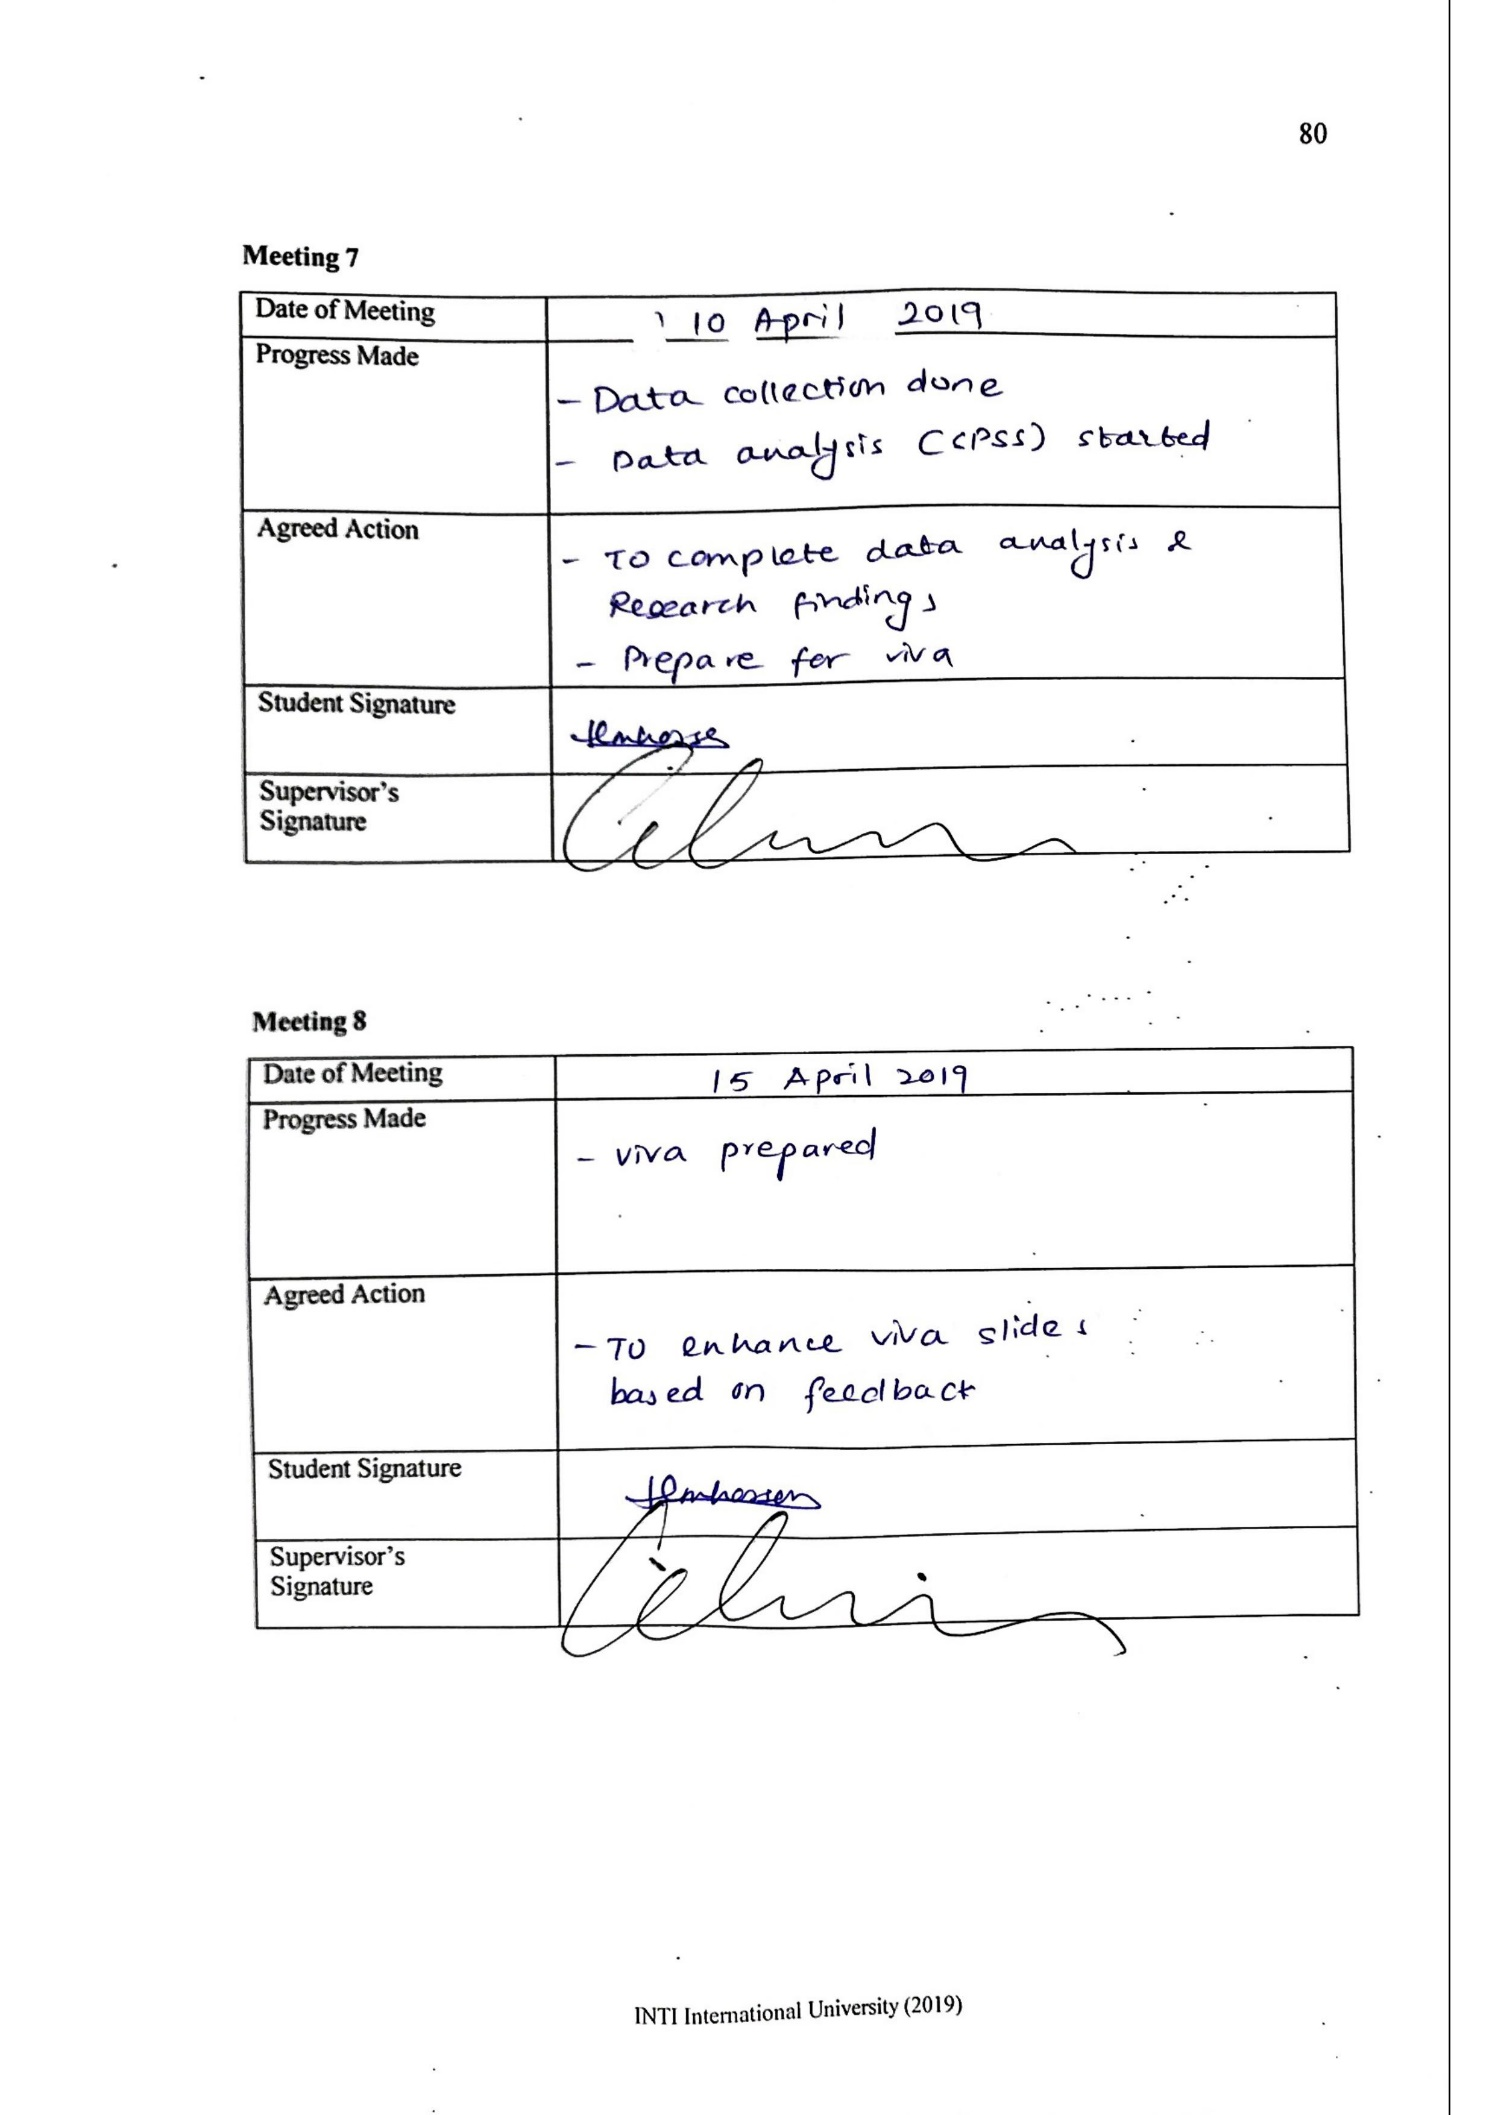 80
Meeting 7
Date of Meeting 10 April 2019
Progress Made
- Data collection done
- Data analysis (CPSS) started
Agreed Action
- To complete data analysis &
Research findings
- Prepare for viva
Student Signature
Supervisor's
Signature
Meeting 8
Date of Meeting 15 April 2019
Progress Made
- viva prepared
Agreed Action
- To enhance viva slides
based on feedback
Student Signature
Supervisor's
Signature
INTI International University (2019)